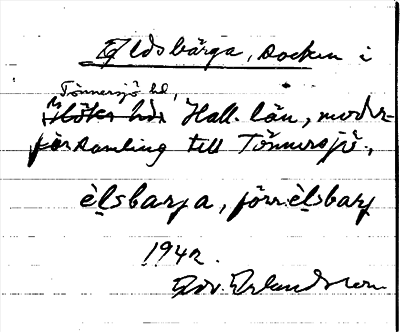 Eldsbärga, socken i
Tönnersjö hd,
Höks hd. Hall. län, moder-
församling till Tönnersjö.,
èlsbarja, förr. èlsbarj
1942.
Edv. Erlandsson